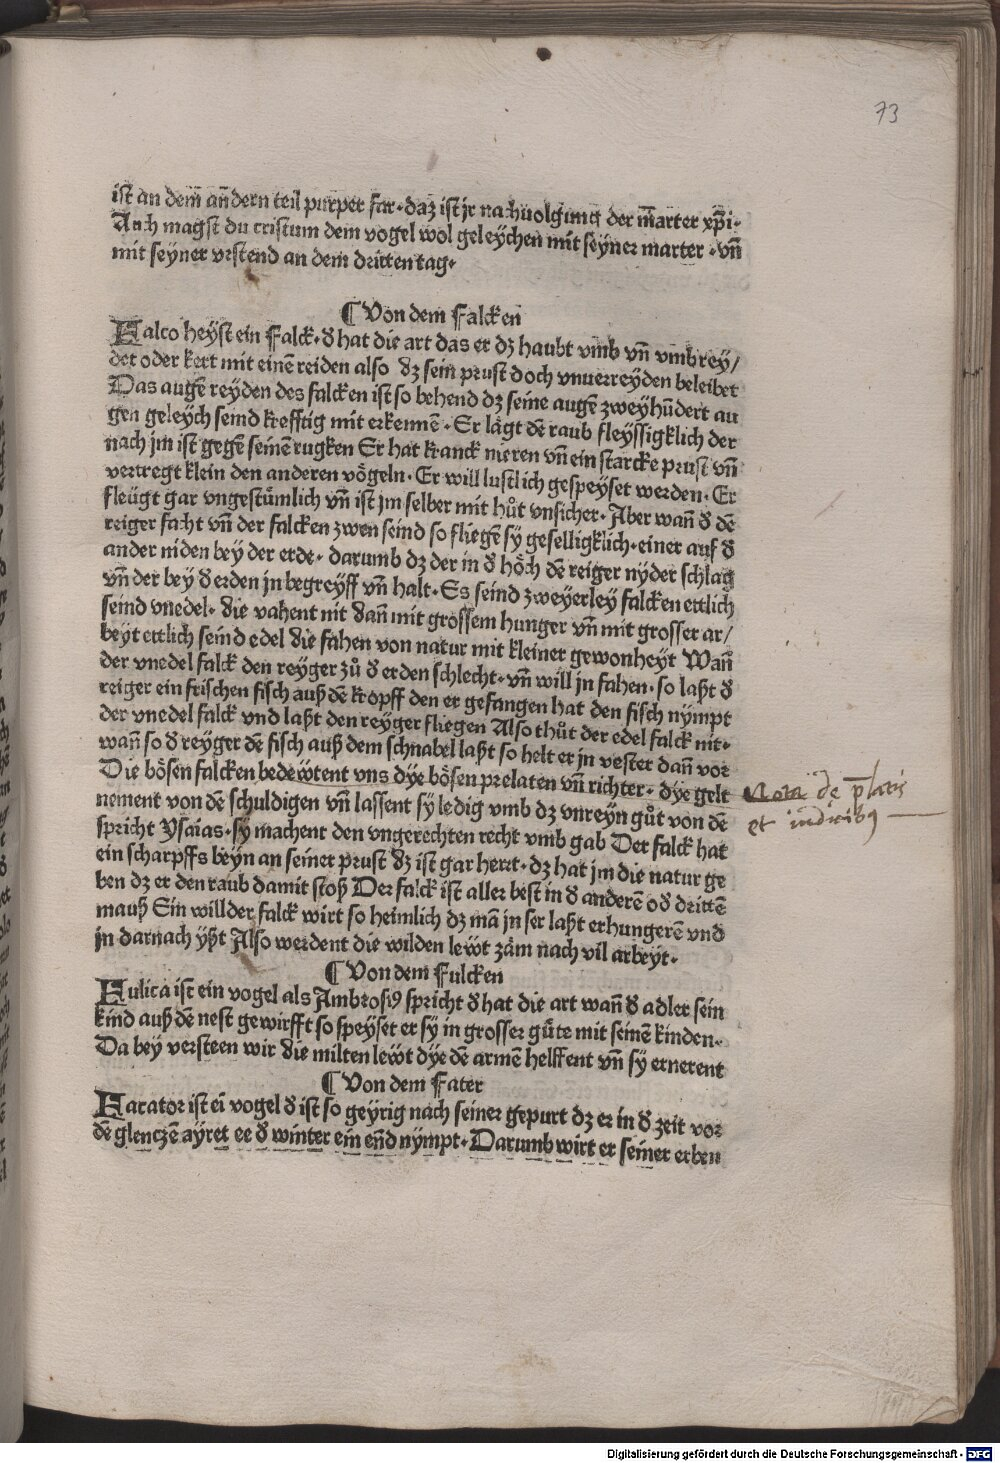 73
ist an dem̄ an̄dern teil purper far· daz ist jr nachuolgung der m̄arter xp̄i·
Auch magst du cristum dem vogel wol geleychen mit seyner marter · vn̄
mit seyner vrstend an dem dritten tag·
¶ Von dem Falcken
FAlco heyst ein Falck· d̄ hat die art das er dz haubt vmb vn̄ vmb rey/
det oder kert mit einē reiden also dz sein prust doch vnuerreyden beleibet
Das augē reyden des falcken ist so behend dz seine augē zweyhūdert au
gen geleych seind krefftig mit erkennē · Er lägt dē raub fleyssigklich der
nach jm ist gegē seinē rugken Er hat kranck nieren vn̄ ein starcke prust vn̄
vertregt klein den anderen vögeln· Er will lustlich gespeyset werden· Er
fleügt gar vngestümlich vn̄ ist jm selber mit hůt vnsicher· Aber wan̄ d̄ dē
reiger facht vn̄ der falcken zwen seind so fliegē sy geselligklich· einer auf d̄
ander niden bey der erde· darumb dz der in d̄ höch dē reiger nyder schlag
vn̄ der bey d̄ erden jn begreyff vn̄ halt· Es seind zweyerley falcken ettlich
seind vnedel· die vahent nit dan̄ mit grossem hunger vn̄ mit grosser ar/
beyt ettlich seind edel die fahen von natur mit kleiner gewonheyt Wan̄
der vnedel falck den reyger zů d̄ erden schlecht· vn̄ will jn fahen· so laßt d̄
reiger ein frischen fisch auß dē kropff den er gefangen hat den fisch nympt
der vnedel falck vnd laßt den reyger fliegen Also thůt der edel falck nit·
wan̄ so d̄ reyger dē fisch auß dem schnabel laßt so helt er jn vester dan̄ vor
Die bösen falcken bedeẅtent vns dye bösen prelaten vn̄ richter· dye gelt
nement von dē schuldigen vn̄ lassent sy ledig vmb dz vnreyn gůt von dē
spricht Ysaias· sy machent den vngerechten recht vmb gab Der falck hat
ein scharpffs beyn an seiner prust dz ist gar hert· dz hat jm die natur ge
ben dz er den raub damit stoß Der falck ist aller best in d̄ anderē od̄ drittē
mauß Ein wilder falck wirt so heimlich dz mā jn ser laßt erhungerē vnd
jn darnach ÿßt Also werdent die wilden leẅt zäm nach vil arbeyt·
¶ Von dem Fulcken
FUlica ist ein vogel als Ambrosi9 spricht d̄ hat die art wan̄ d̄ adler sein
kind auß dē nest gewirfft so speyset er sy in grosser güte mit seinē kinden·
Da bey versteen wir die milten leẅt dye dē armē helffent vn̄ sy ernerent
¶ Von dem Fater
FArator ist eī vogel d̄ ist so geyrig nach seiner gepurt dz er in d̄ zeit vor
dē glenczē ayret ee d̄ winter ein en̄d nympt· Darumb wirt er seiner erben
Nota de p̄latis
et iudicib9
Digitalisierung gefördert durch die Deutsche Forschungsgemeinschaft - DFG